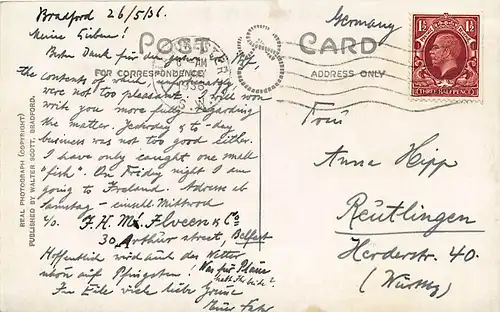 Bradford 26/5/36.
Meine Lieben!
Besten Dank für den
the contents of which, unfortunately
were not too pleasant. I will soon
write you more fully regarding
the matter. Yesterday & to-day
business was not too good either.
I have only caught one small
"fish". On Friday night I am
going to Ireland. Address ab
Samstag - einschl Mittwoch
c/o F. H. Mc. Ilveen & Co
30, Arthur street, Belfast
Hoffentlich wird auch das Wetter
auf Pfingsten! Was für Pläne
habt Ihr
In Eile viele liebe Grüsse
Euer
POST CARD
FOR CORRESPONDENCE
ADDRESS ONLY
REAL PHOTOGRAPH (COPYRIGHT)
PUBLISHED BY WALTER SCOTT, BRADFORD.
AM
1936
1½ 1½
THREE HALFPENCE
Germany
Frau
Anna Hipp
Reutlingen
Herderstr. 40.
(Württbg)